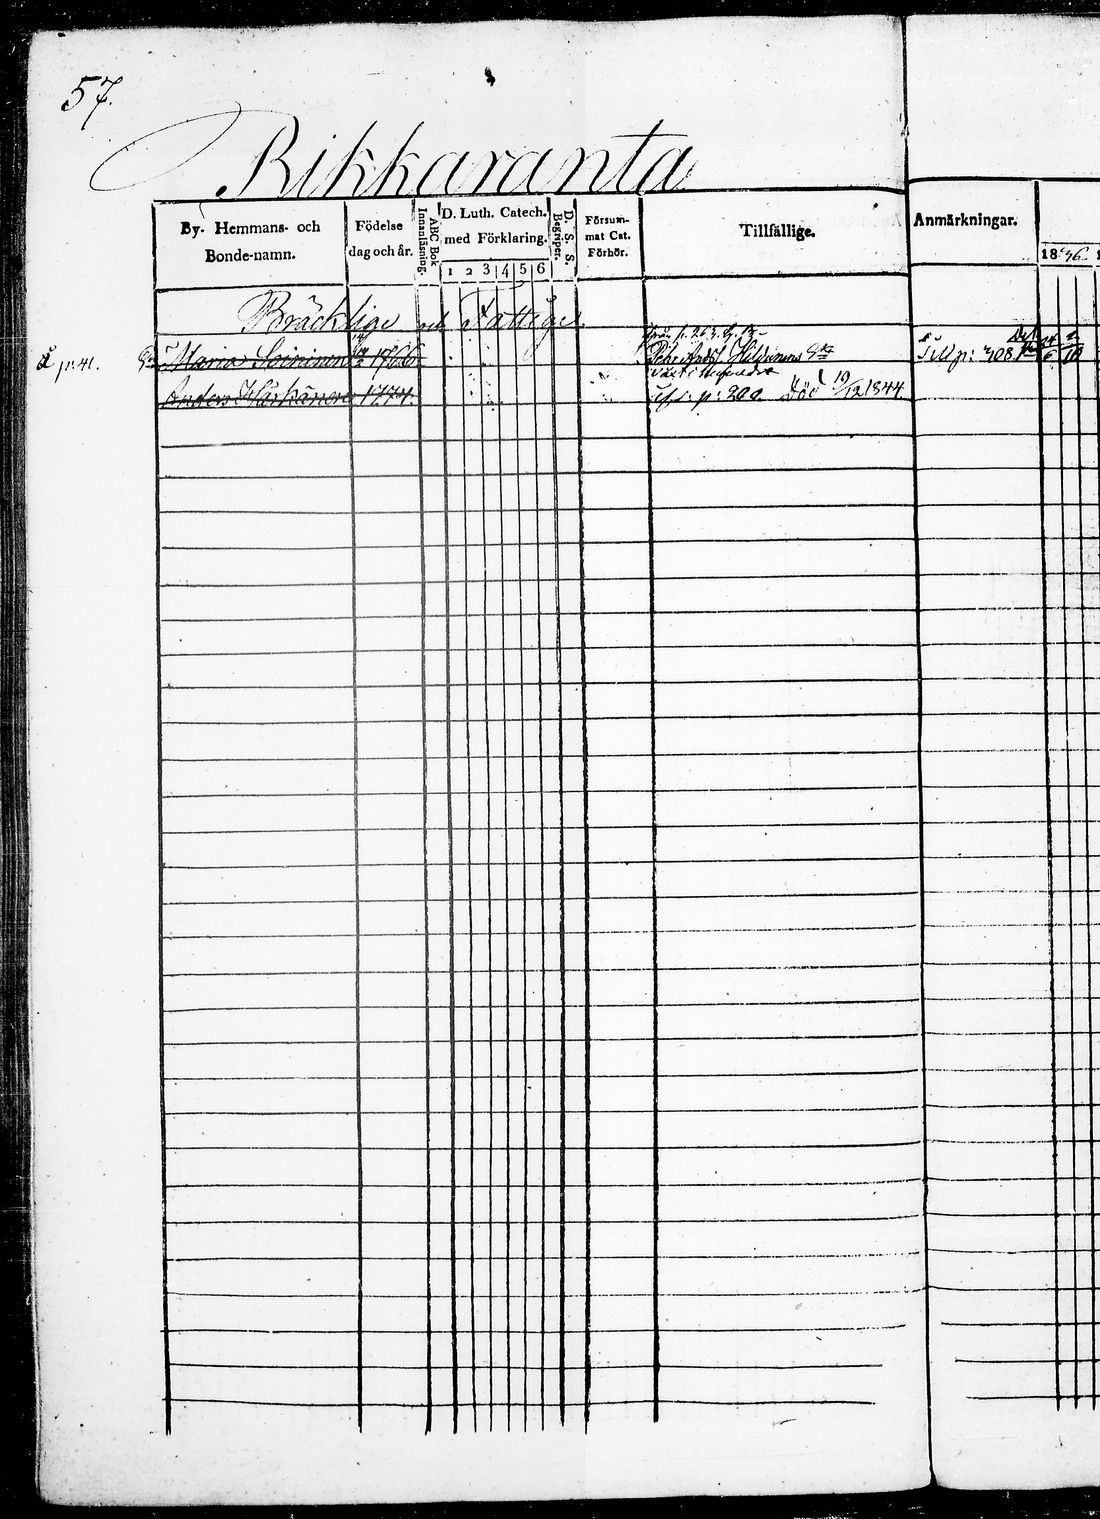 57.
Rikkaranta
By- Hemmans- och Bonde-namn.
Födelse dag och år.
ABC Bok Innanläsning.
D. Luth. Catech. med Förklaring.
1 2 3 4 5 6
D. S. S. Begriper.
Försummat Cat. Förhör.
Tillfällige.
Anmärkningar.
1846
Bräcklige och Fattige.
p. 41. Maria Soininen 1766
Till p: 408
Anders Kärkäinen 1774.
p: 200. Död 19/12 1844.